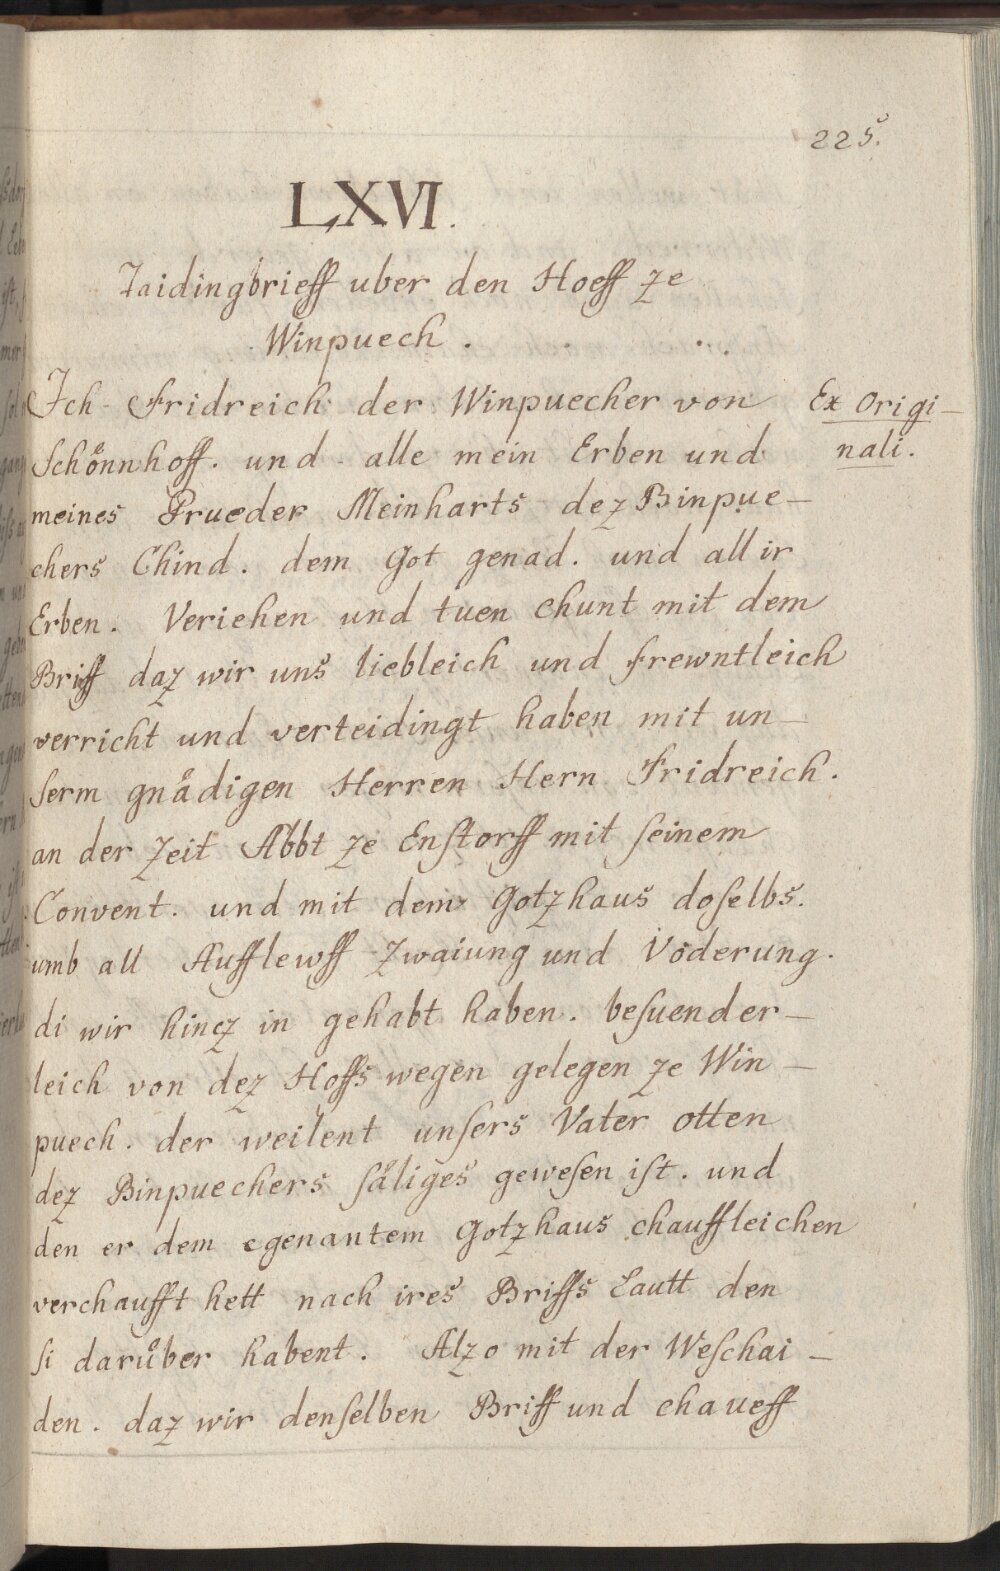 225.
LXVI.
Taidingbrieff uber den Hoeff ze
Winpuech.
Ich Fridreich der Winpuecher von
Schönnhoff. und alle mein Erben und
meines Prueder Meinharts dez Binpue-
chers Chind. dem Got genad. und all ir
Erben. Veriehen und tuen chunt mit dem
Briff daz wir uns liebleich und frewntleich
verricht und verteidingt haben mit un-
serm gnådigen Herren Hern Fridreich.
an der Zeit Abbt ze Enstorff mit seinem
Convent. und mit dem Gotzhaus doselbs.
umb all Aufflewff Zwaiung und Vöderung.
di wir hincz in gehabt haben. besuender-
leich von dez Hoffs wegen gelegen ze Win-
puech. der weilent unsers Vater otten
dez Binpuechers såliges gewesen ist. und
den er dem egenantem Gotzhaus chauffleichen
verchaufft hett nach ires Briffs Lautt den
si darůber habent. Alzo mit der Weschai-
den. daz wir denselben Briff und chaueff
Ex Origi-
nali.